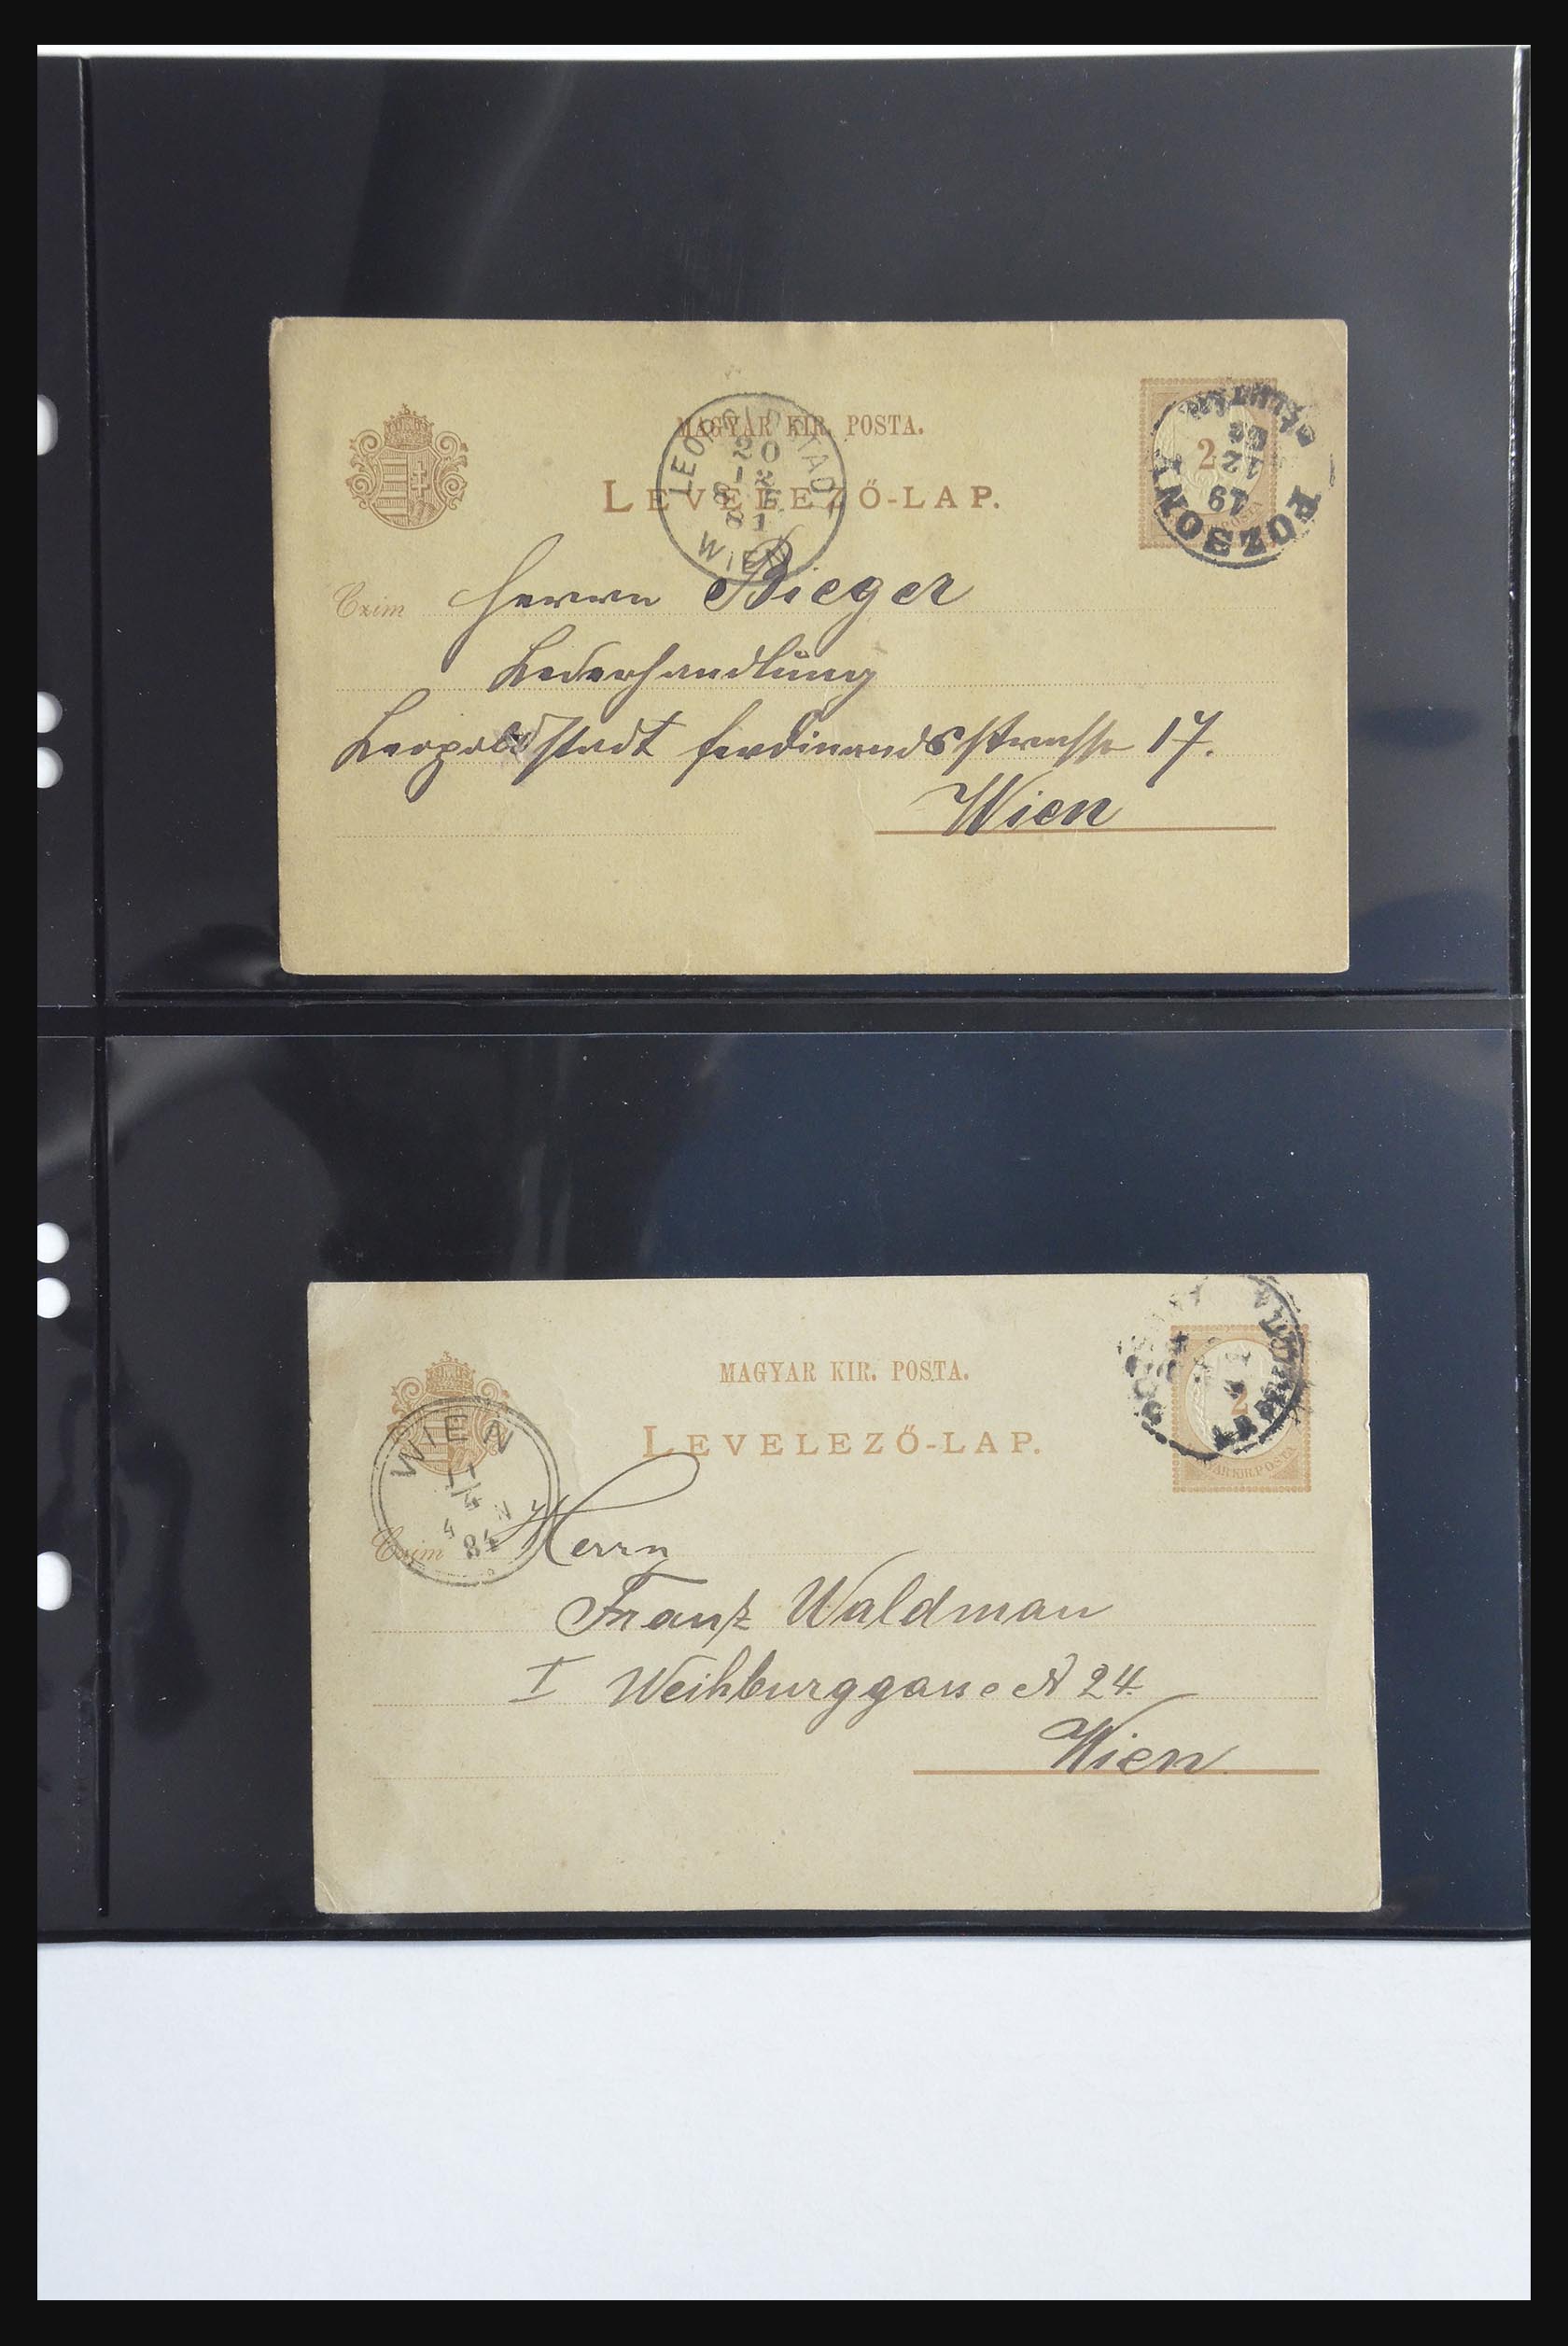 MAGYAR KIR. POSTA.
LEVELEZŐ-LAP.
2
POZSONY
19
12
LEOPOLDSTADT
20
12
8 F.
81
WIEN
Czim Herrn Bieger
Lederhandlung
Leopoldstadt Ferdinandsstrasse 17.
Wien
MAGYAR KIR. POSTA.
LEVELEZŐ-LAP.
2
MAGYAR KIR. POSTA
WIEN
84
Czim Herrn
Franz Waldman
I Weihburggasse N 24.
Wien